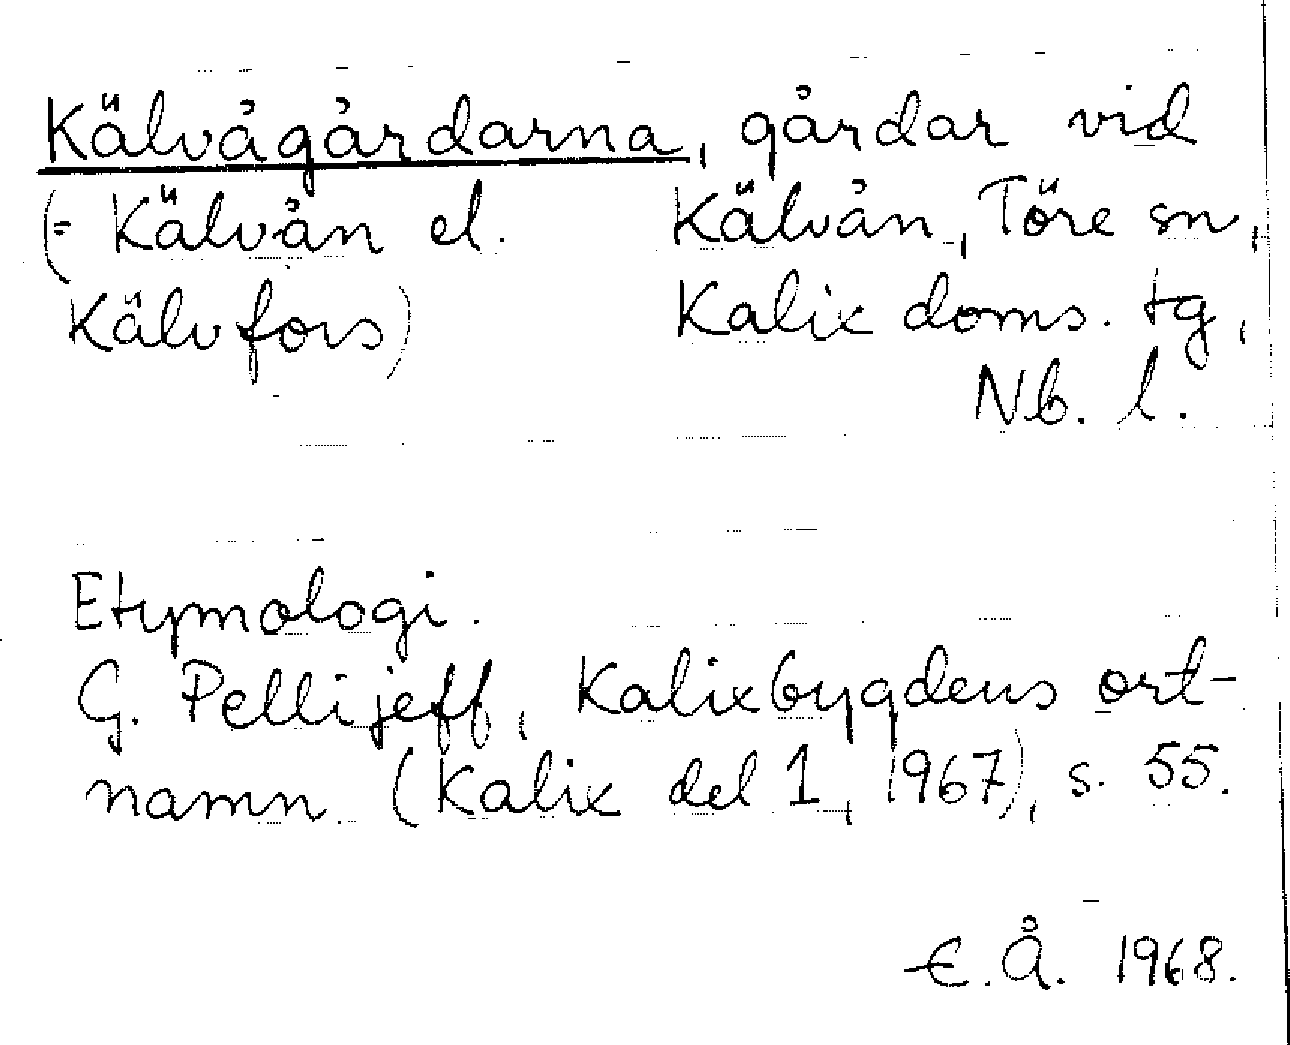 Kälvågårdarna, gårdar vid
(= Kälvån el. Kälvån, Töre sn,
Kälvfors) Kalix doms. tg,
Nb. l.
Etymologi.
G. Pellijeff, Kalixbygdens ort-
namn. (Kalix del 1, 1967), s. 55.
E. Å. 1968.